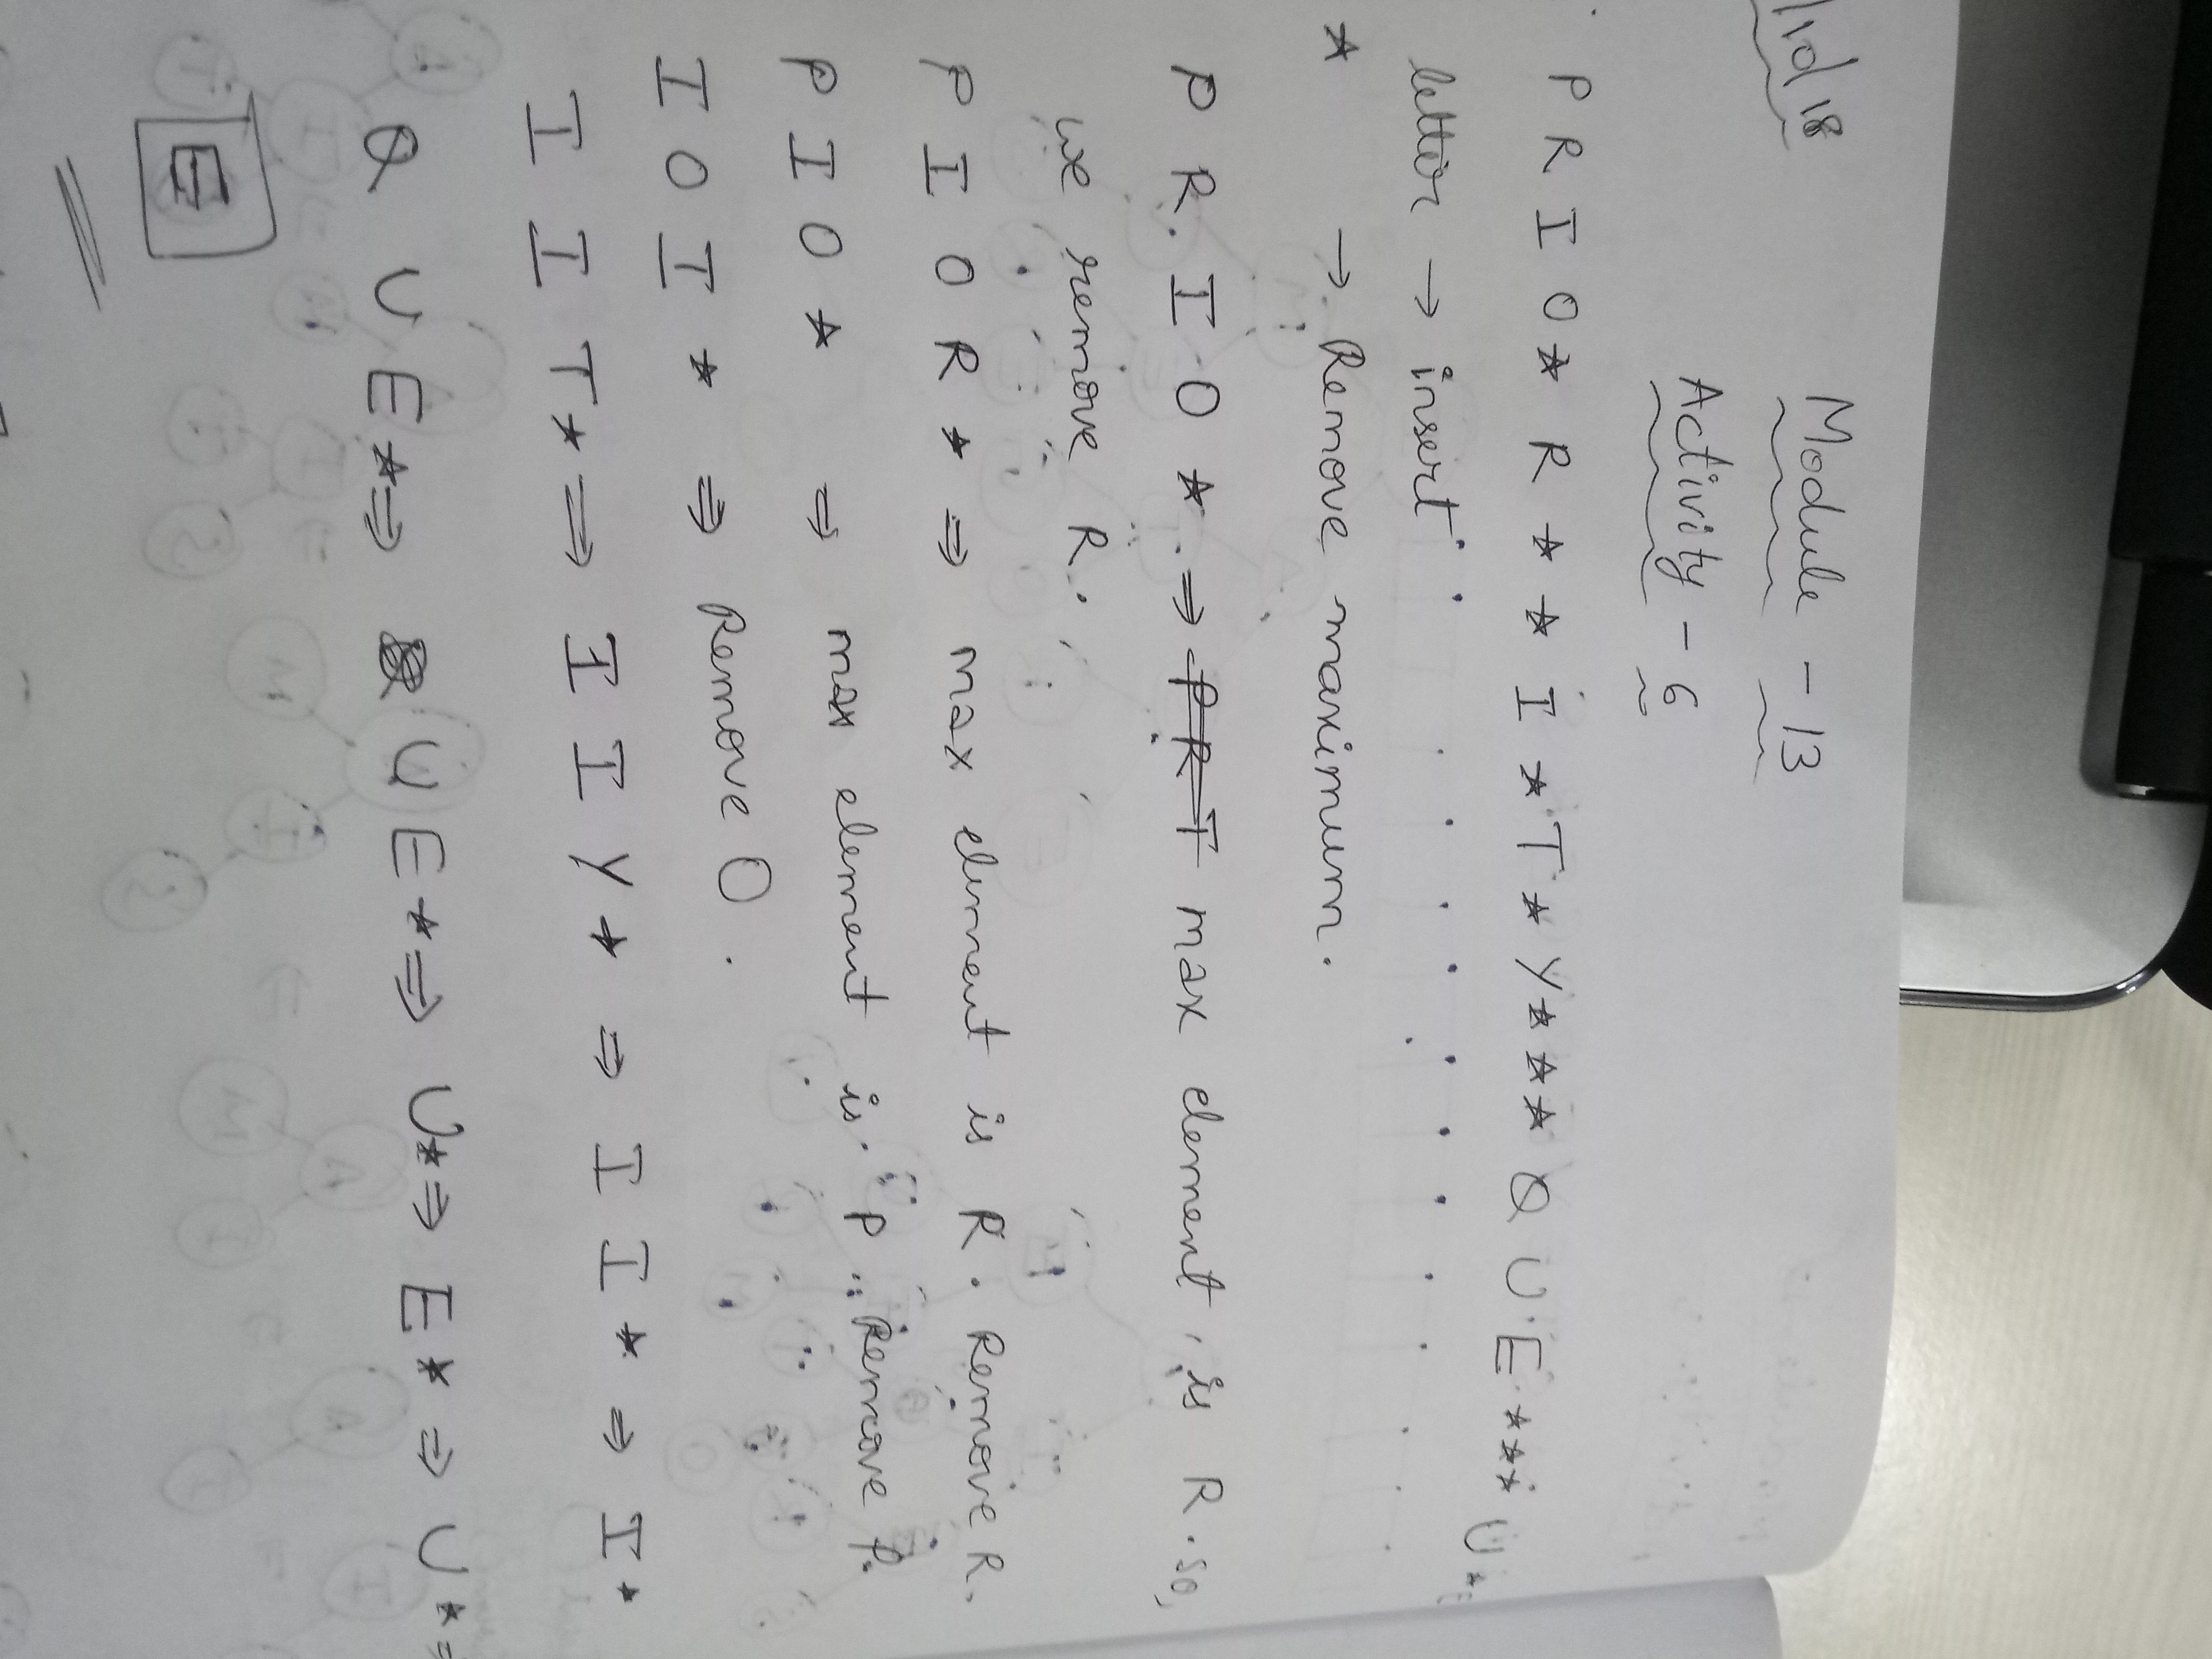 Module - 13
Activity - 6
P R I O * R * * I * T * Y * * * Q U E * * * U * E
letter → insert
* → Remove maximum.
P R I O * ⇒ P R I max element is R. so,
we remove R.
P I O R * ⇒ max element is R. Remove R.
P I O * ⇒ max element is P Remove P.
I O I * ⇒ Remove O.
I I T * ⇒ I I Y * ⇒ I I * ⇒ I *
Q U E * ⇒ U E * ⇒ U * ⇒ E * ⇒ U * =
E